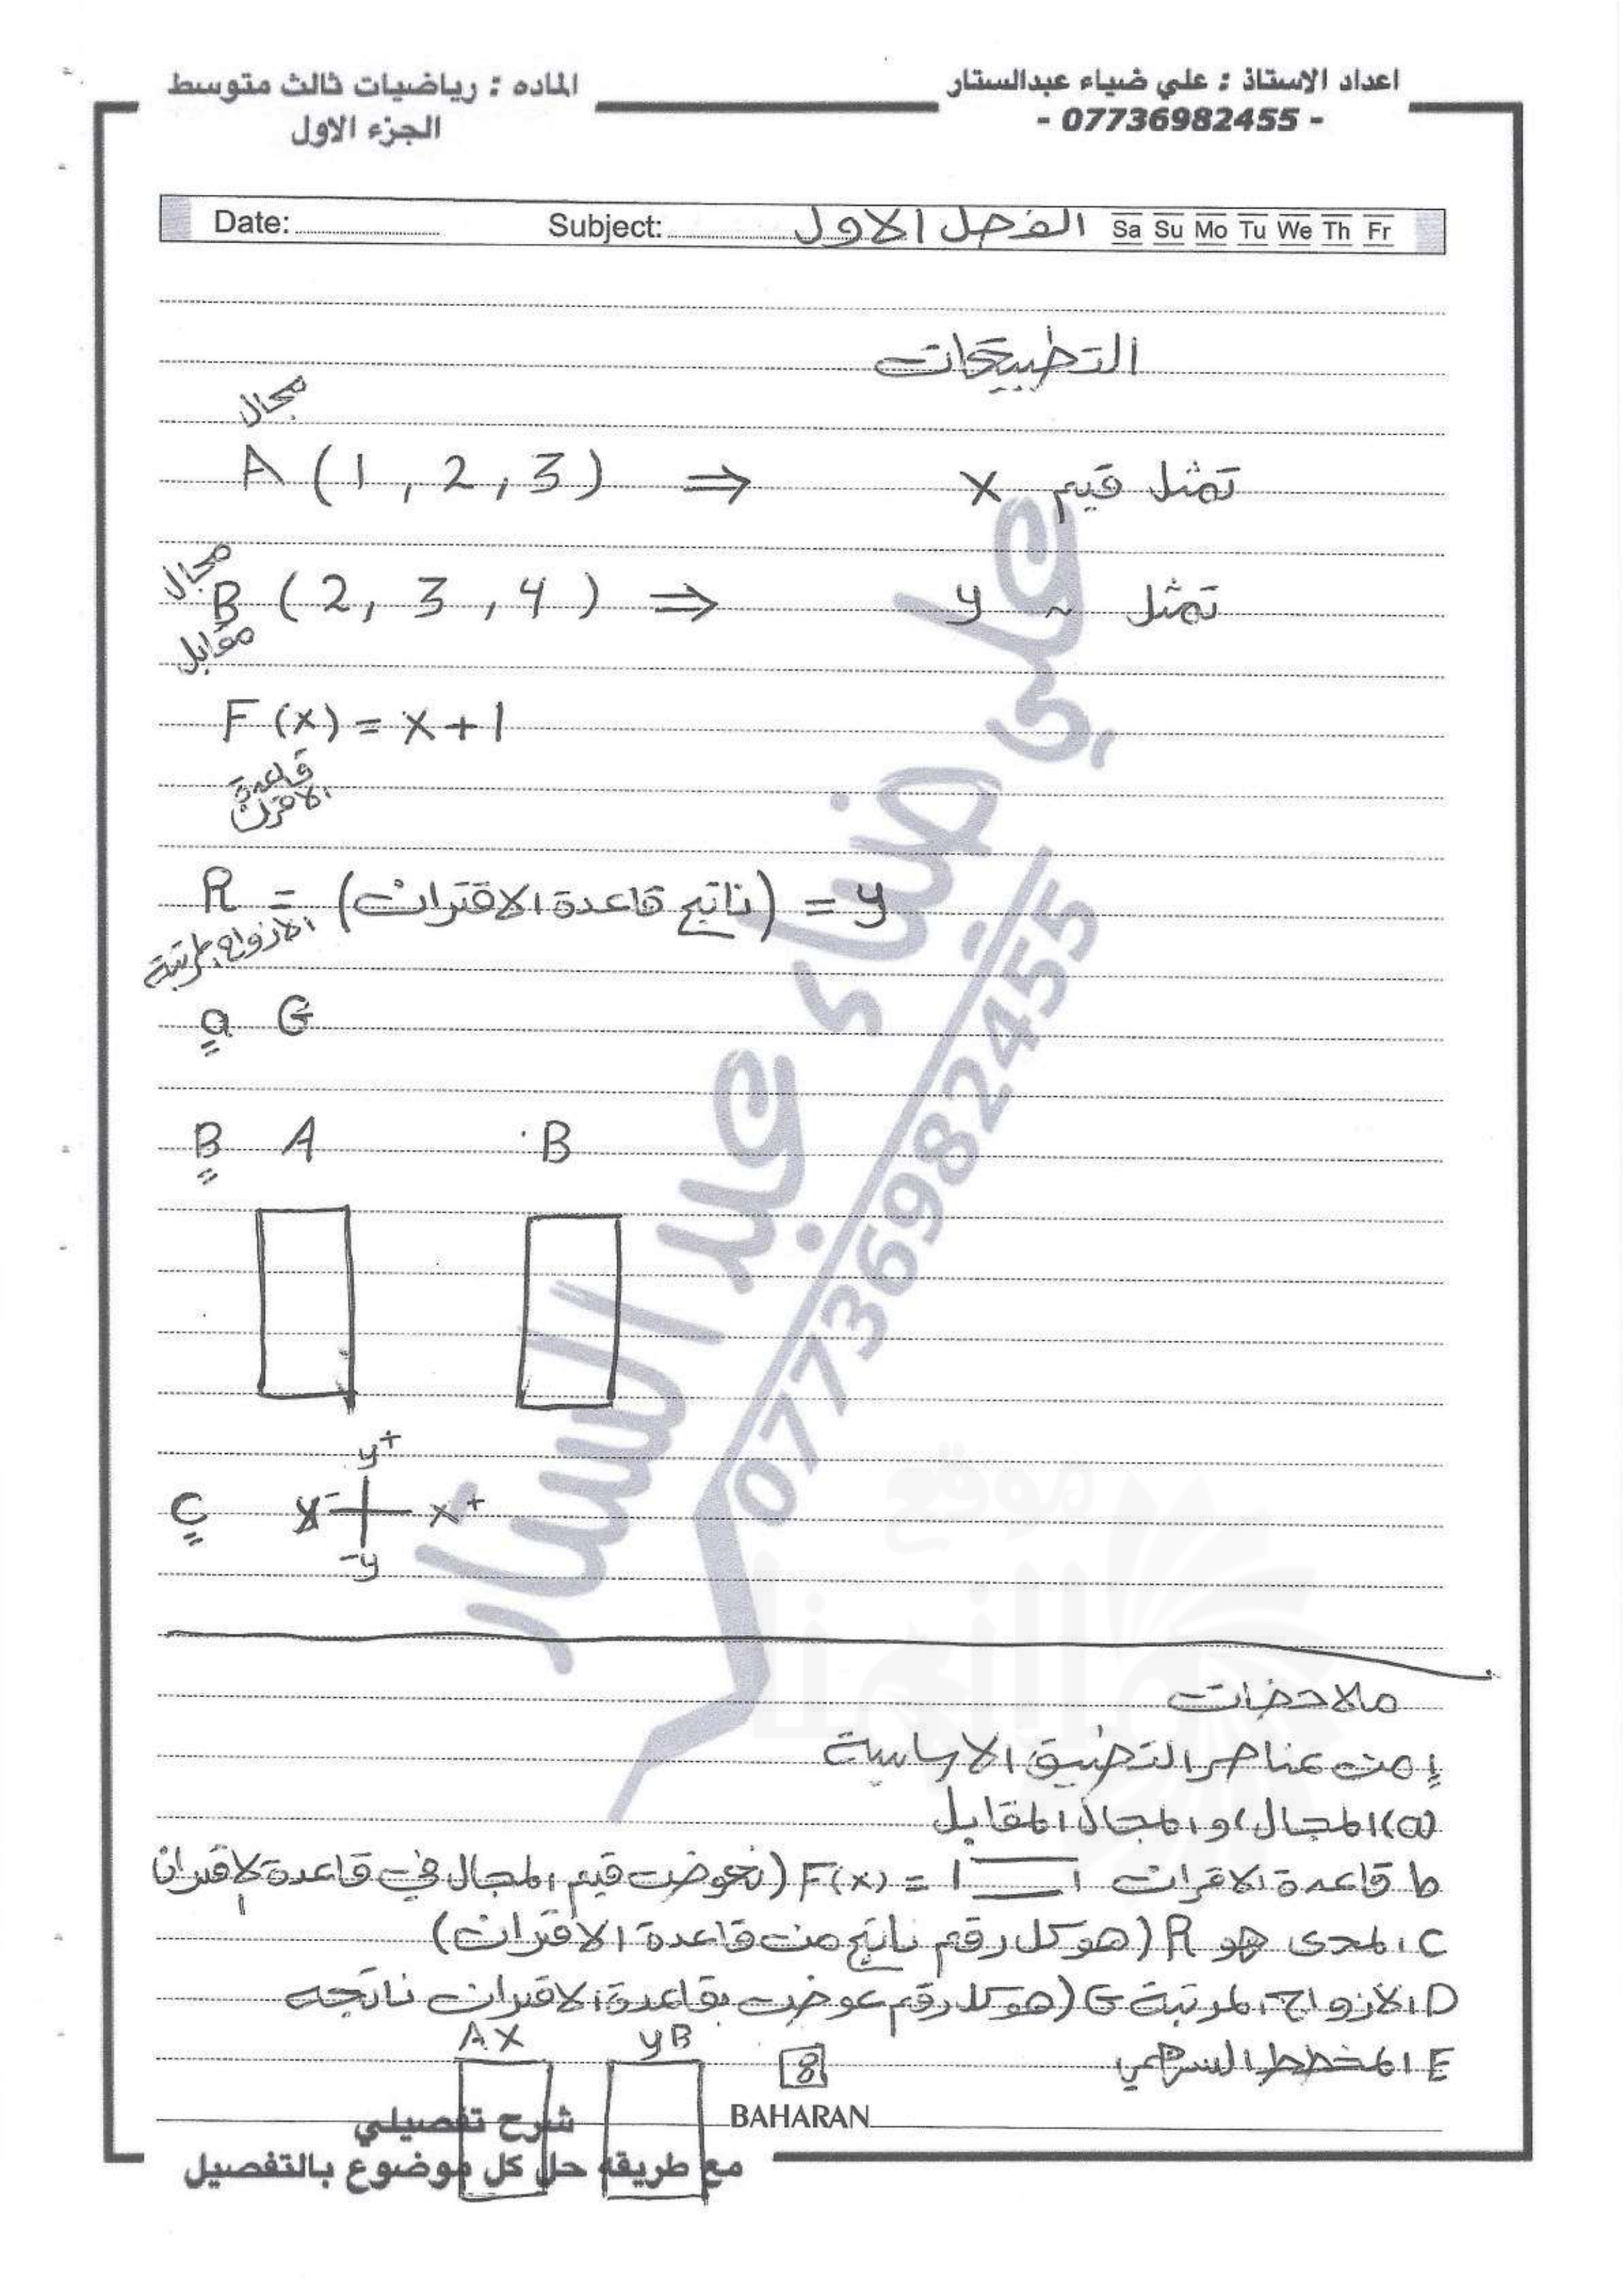 اعداد الاستاذ : علي ضياء عبدالستار
- 07736982455 -
الماده : رياضيات ثالث متوسط
الجزء الاول
Date: Subject: الفصل الاول Sa Su Mo Tu We Th Fr
التطبيقات
مجال
A (1, 2, 3) ⇒ تمثل قيم x
مجال
B (2, 3, 4) ⇒ تمثل ~ y
مقابل
F(x) = x+1
قاعدة
الاقتران
R = (ناتج قاعدة الاقتران) = y
الازواج المرتبة
a G
B A B
y+
C x- x+
-y
ملاحضات
1 من عناصر التضبيق الاساسية
a) المجال، والمجال المقابل
b قاعدة الاقران F(x) = (نعوض قيم المجال في قاعدة الاقتران
C المدى هو R (هو كل رقم ناتج من قاعدة الاقتران)
D الازواج المرتبة G (هو كل رقم عوض بقاعدة الاقتران ناتجه
E المخطط السهمي
A X y B
8
BAHARAN
شرح تفصيلي
مع طريقه حل كل موضوع بالتفصيل
علي ضياء عبد الستار
07736982455
موقع